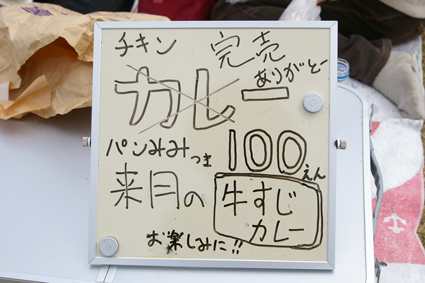 チキン 完売
カレー ありがとー
パンみみつき 100えん
来月の 牛すじカレー
お楽しみに!!